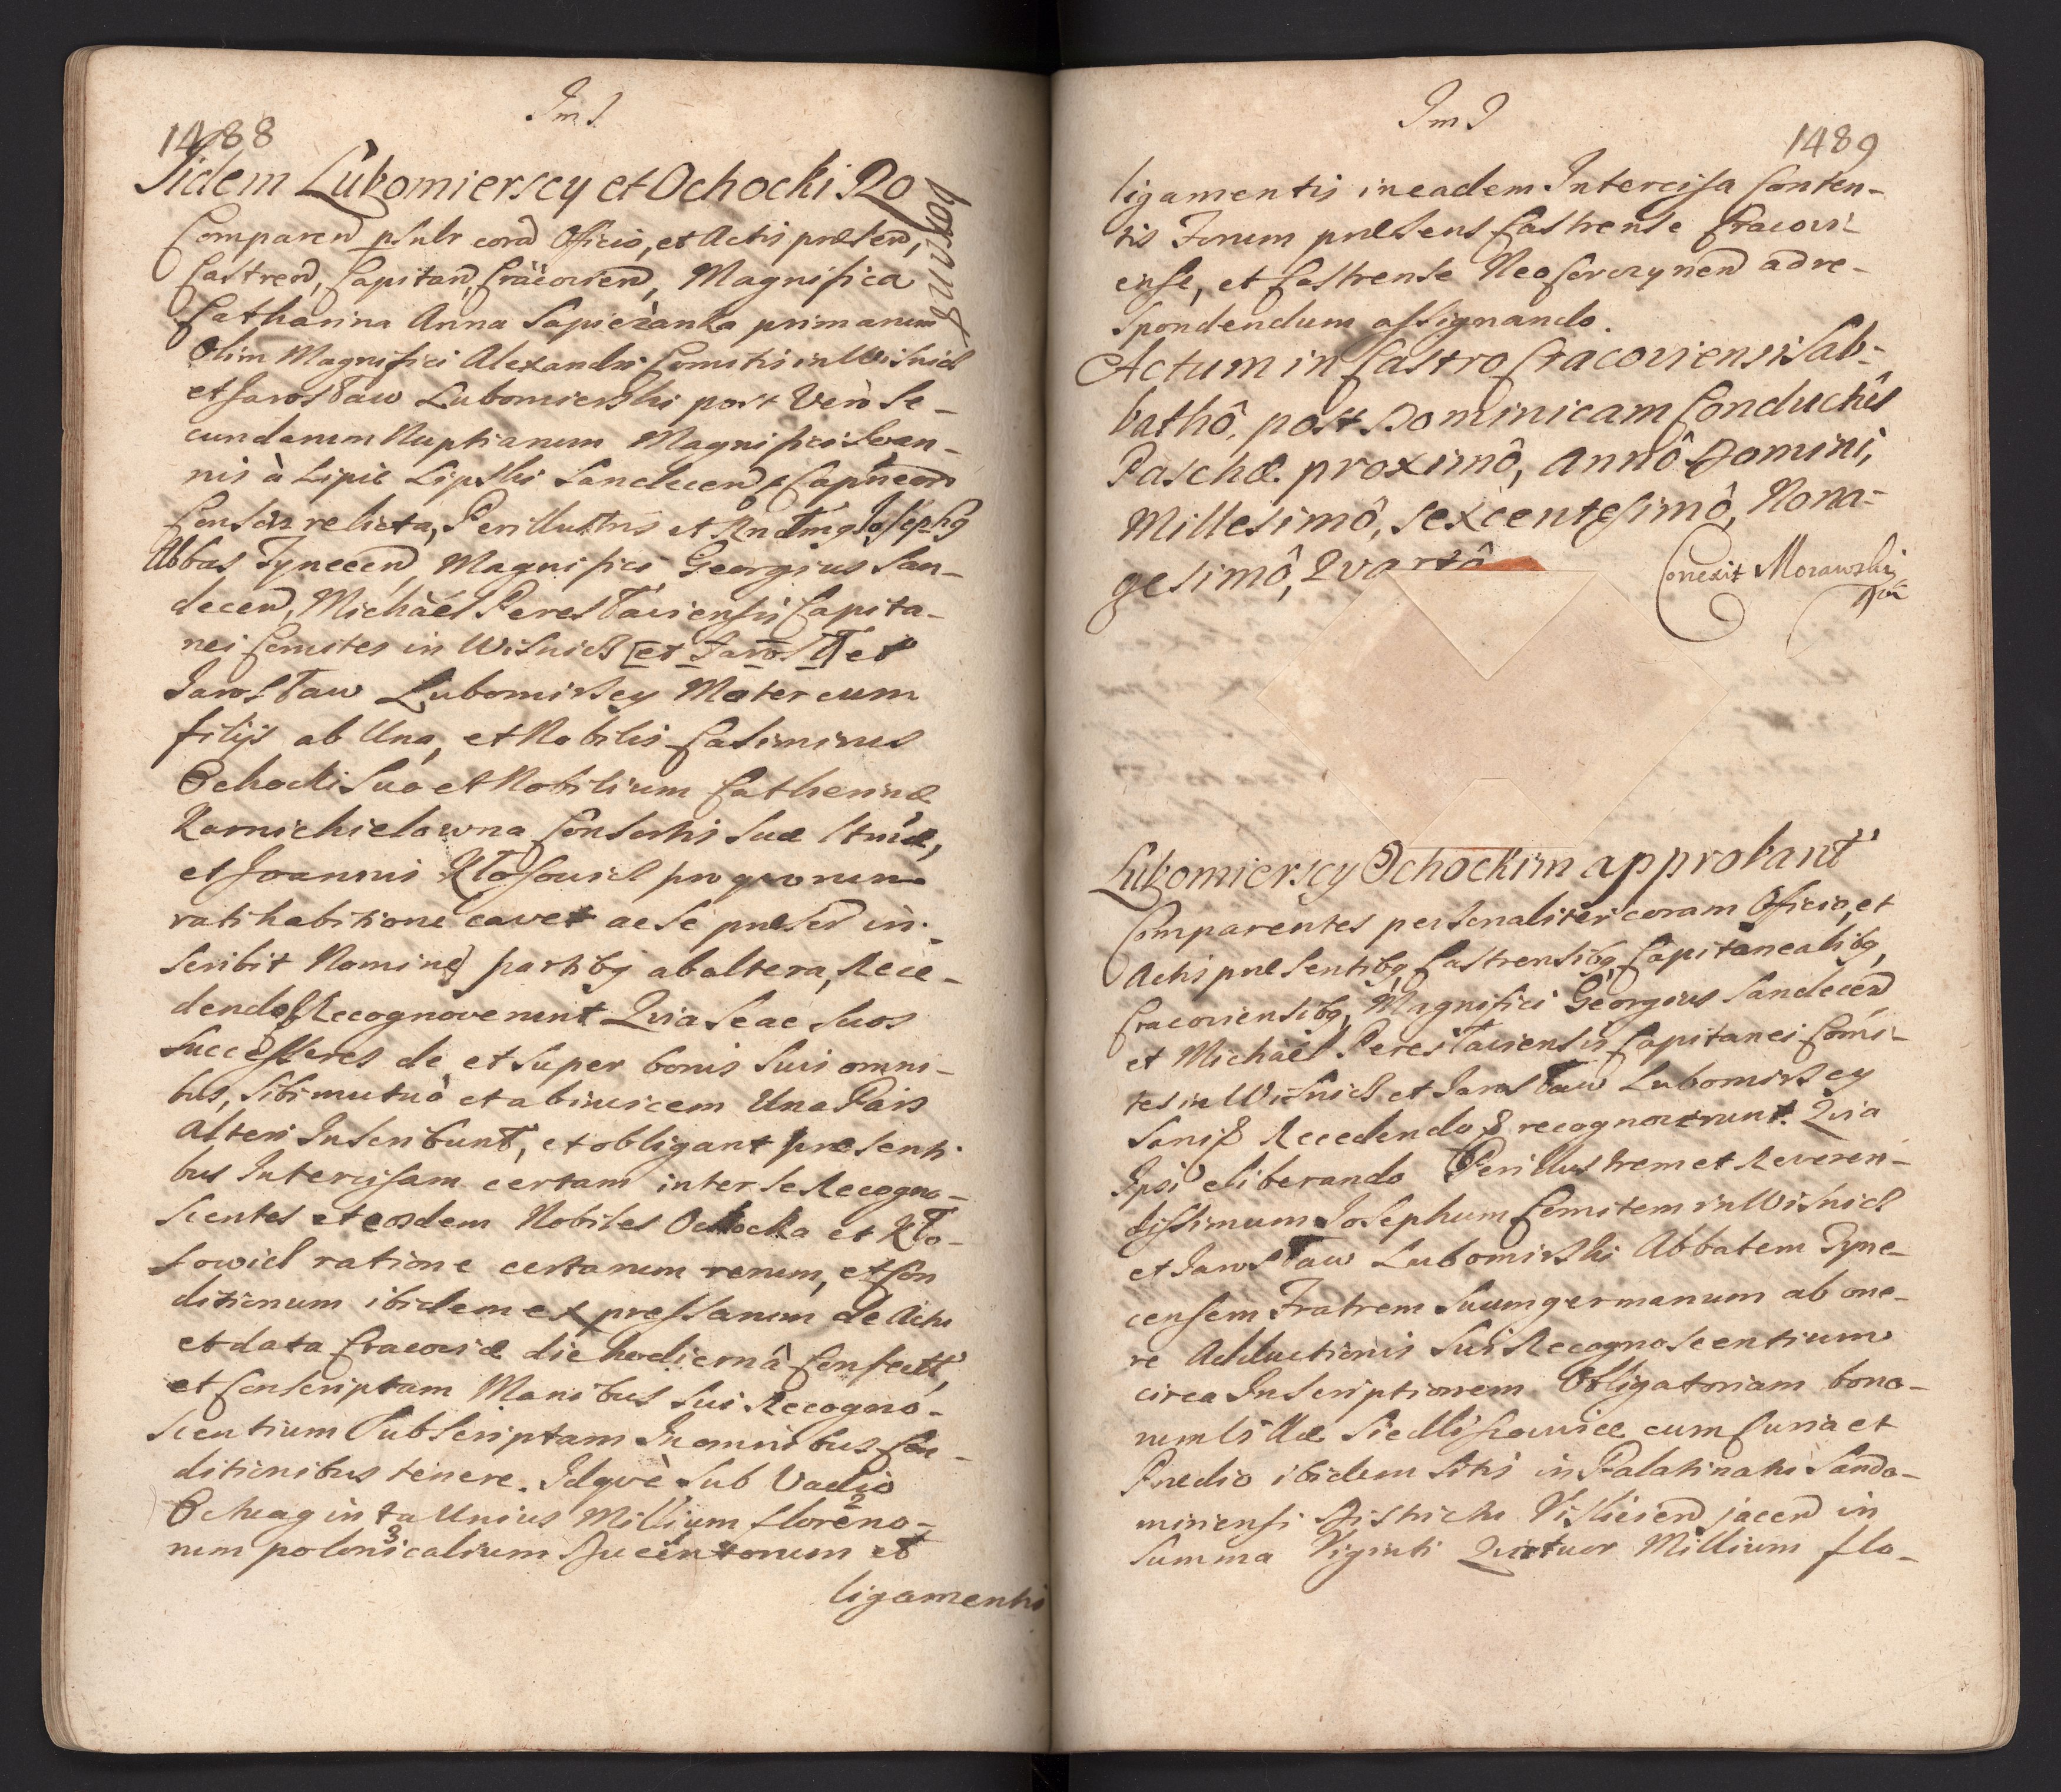 1488
Ime
Iidem Lubomierscy et Ochocki Ro
borant
Comparen psnlr corā Officio, et Actis præsen,
Castren, Capitan, Cracovien, Magnifica
Catharina Anna Sapieżanka primarum
Olim Magnifici Alexandri Comitis in Wisnicz
et Jarosław Lubomierski post Verò Se-
cundarum Nuptiarum Magnifici Ioan-
nis à Lipie Lipski Sandecen Capnei
Consors relicta, Perillustris et Rndmg Josephg
Abbas Tynecen, Magnifici Georgius San-
decen, Michaël Peresłaviensis Capita-
nei Comites in Wisnicz [et Jarosł] et
Jarosław Lubomirscy Mater cum
filijs ab Una, et Nobilis Casimirus
Ochocki Suo et Nobilium Catherinæ
Karnichielowna Consortis Suæ ltmæ,
et Joannis Kłosowicz pro quorum
ratihabitione cavet ac se præsen in-
scribit Nomine partibg ab altera, Rece-
dendo Recognoverunt Quia Se ac Suos
Successores de et Super bonis Suis omni-
bus, Sibi mutuò et ab invicem Una Pars
Alteri Inscribunt, et obligant præsenti-
bus Intercisam certam inter Se Recogno-
scentes et eosdem Nobiles Ochocka et Kło-
sowicz ratione certarum rerum, et Con
ditionum ibidem expressarum de Actu
et data Cracoviæ die hodiernâ Confect,
et Conscriptam Manibus Sui Recogno-
scentium Subscriptam In omnibus Con-
ditionibus tenere. Idqvè Sub Vadio
Octuaginta Unius Millium floreno-
rum polonicalium Ducentorum et
ligamentis
Ime
1489
ligamentis in eadem Intercisa Conten-
tis Forum præsens Castrense Cracovi-
ense, et Castrense Neo Corczynen ad re-
spondendum assignando.
Actum in Castro Cracoviensi Sab-
bathô, post Dominicam Conductûs
Paschæ proximô, Annô Domini,
Millesimô, Sexcentesimô, Nona-
gesimô, Qvartô
Correxit Morawski
Lubomierscy Ochockim approbant
Comparentes personaliter coram Officio, et
Actis præsentibg, Castrensibg Capitanealibg,
Cracoviensibg, Magnifici Georgius Sandecen
et Michaël Peresłaviensis Capitanei Comi-
tes in Wisnicz et Jarosław Lubomirscy
Sani Recedendo recognoverunt. Quia
Ipsi eliberando Perillustrem et Reveren-
dissimum Josephum Comitem in Wisnicz
et Jarosław Lubomirski Abbatem Tyne-
censem Fratrem Suum germanum ab one-
re Adductionis Sui Recognoscentium
circa Inscriptionem Obligatoriam bono-
rum Villæ Siedliszowice cum Curia et
Prædio ibidem Sitis in Palatinatu Sando-
miriensi Districtu Vislicien jacen in
Summa Viginti Quatuor Millium flo-